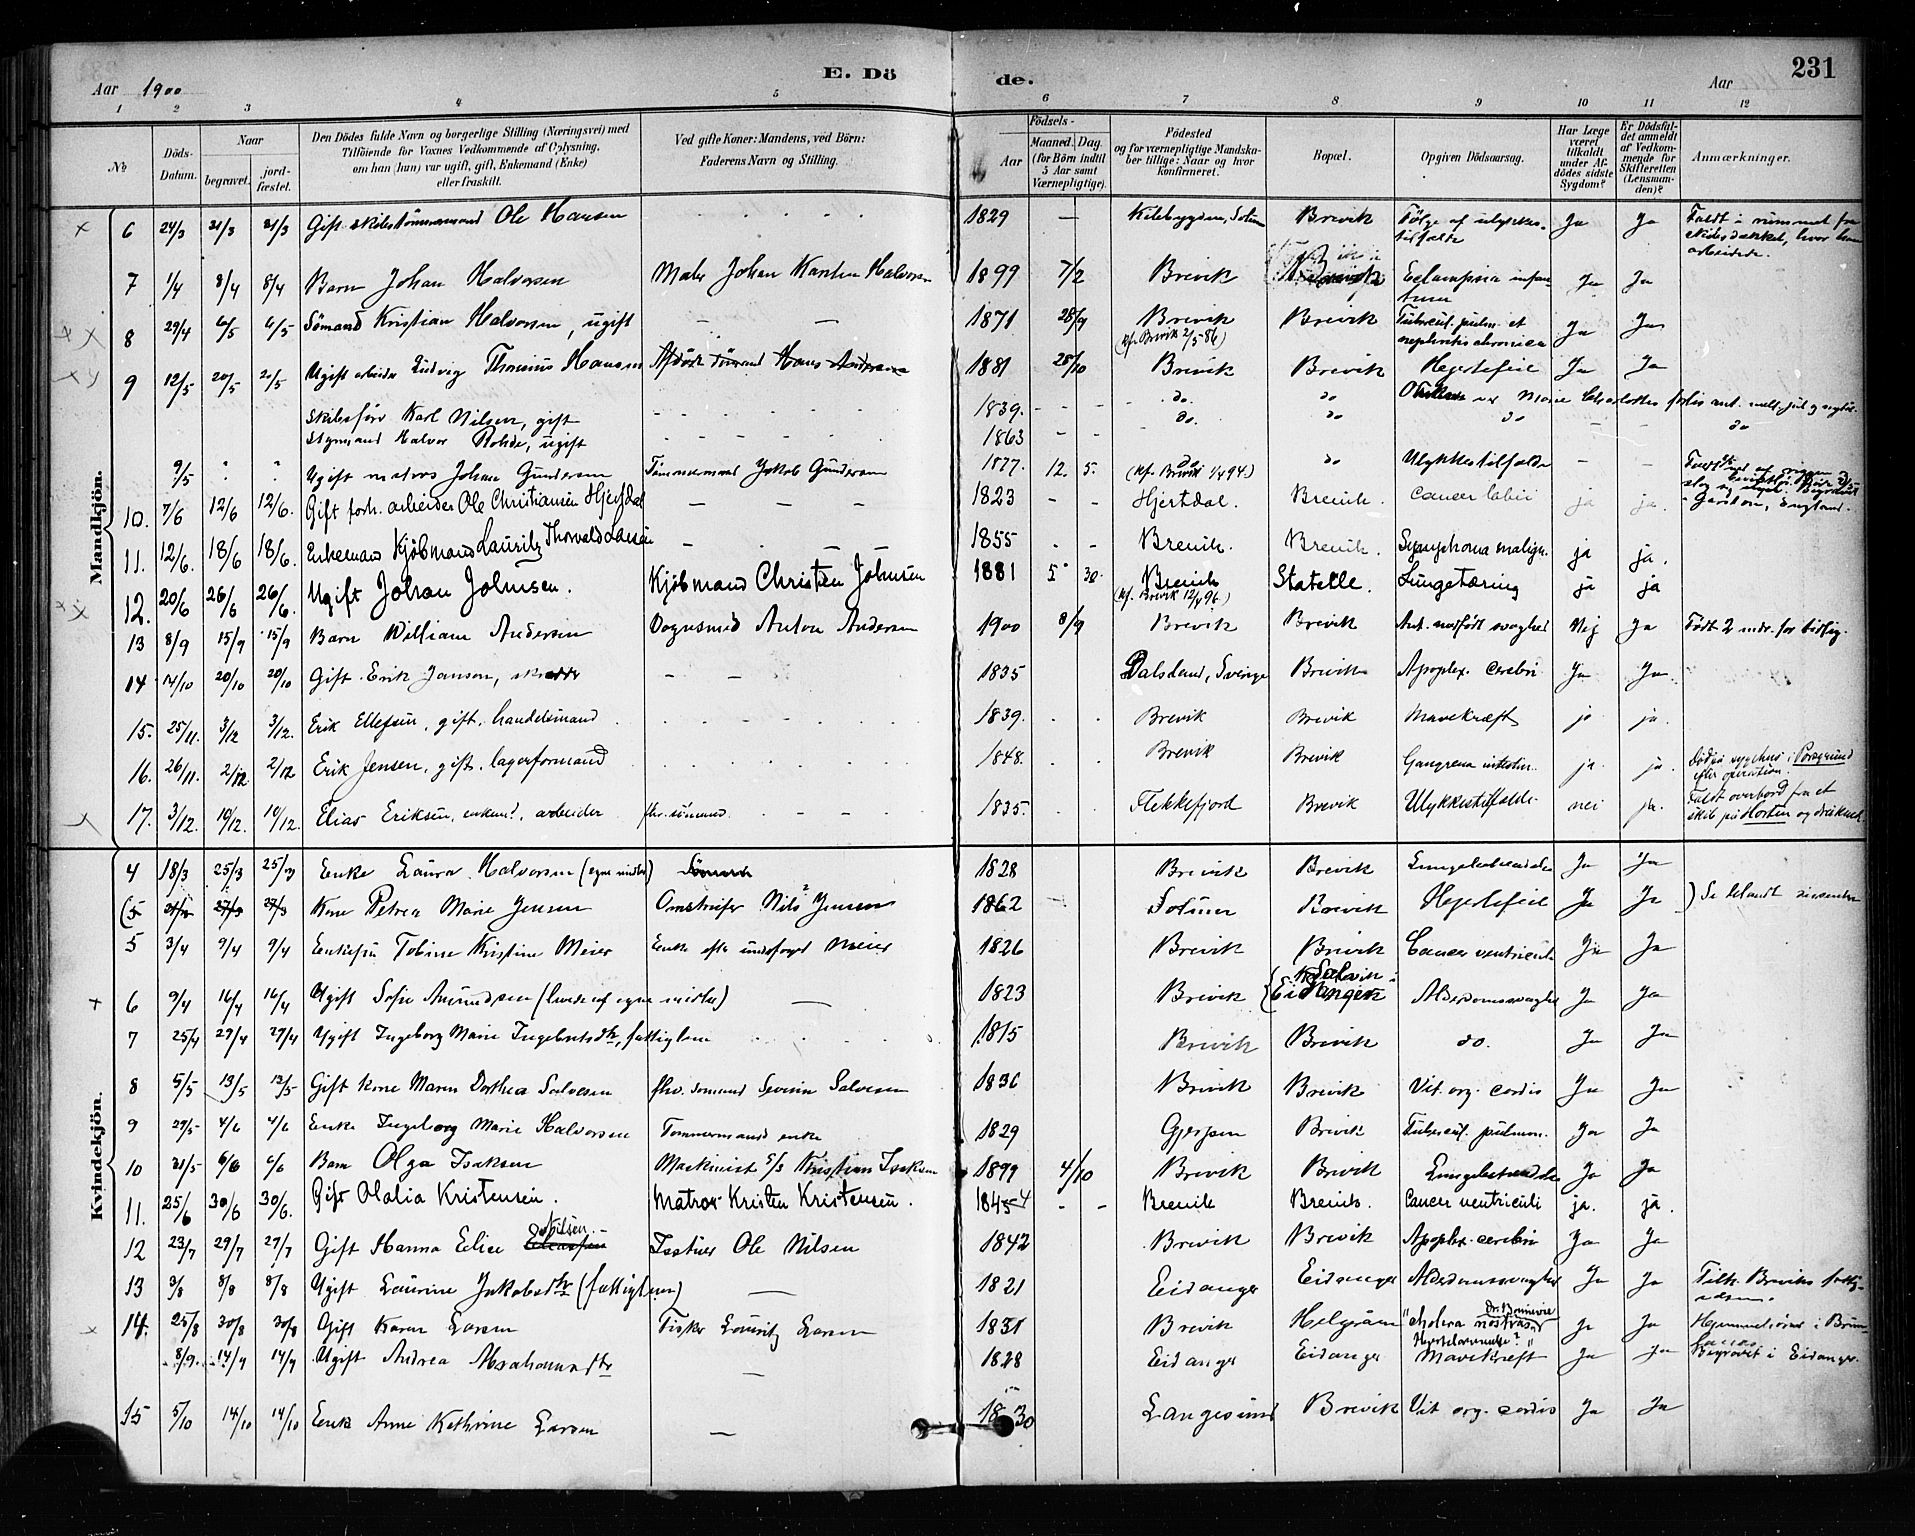 E. Dö de.
231
Aar 1900
Aar
1 2 3 4 5 6 7 8 9 10 11 12
No
Döds-Datum.
Naar
begravet.
jord-fæstet.
Den Dödes fulde Navn og borgerlige Stilling (Næringsvei) med
Tilföiende for Voxnes Vedkommende af Oplysning,
om han (hun) var ugift, gift, Enkemand (Enke)
eller fraskilt.
Ved gifte Koner: Mandens, ved Börn:
Faderens Navn og Stilling.
Födsels-
Aar
Maaned. Dag.
(for Börn indtil
5 Aar samt
Værnepligtige).
Födested
og for værnepligtige Mandska-
ber tillige: Naar og hvor
konfirmeret.
Bopæl.
Opgiven Dödsaarsag.
Har Læge
været
tilkaldt
under Af-
dödes sidste
Sygdom?
Er Dödsfal-
det anmeldt
af Vedkom-
mende for
Skifteretten
(Lensman-
den)?
Anmærkninger.
Mandkjön.
6 24/3 31/3 31/3 Gift skibstömmermand Ole Hansen 1829 — Brevik Fölge af ulykkes-tilfælde Ja Ja Faldt i rummet fra skibsdækket, hvor han arbeidede.
7 1/4 8/4 8/4 Barn Johan Halvorsen Johan Karsten Halvorsen 1899 7/2 Brevik Eclampsia infantum Ja Ja
8 29/4 6/5 6/5 Sömand Kristian Halvorsen, ugift — — 1871 28/9 Brevik (kf. Brevik 2/5 86) Brevik Tubercul. pulm. et nephritis chronica Ja Ja
9 12/5 20/5 20/5 Ugift arbeider Ludvig Thominus Hansen Afdöde sömand Hans Andersen 1881 28/10 Brevik Brevik Hjertefeil Ja Ja
Skibsförer Karl Nilsen, gift 1839. do. do
Styrmand Halvor Rohde, ugift 1863 do. do do — — do
9/5 " " Ugift matros Johan Gundersen Tömmermand Jakob Gundersen 1877. 12. 5. do (kf. Brevik 1/4 94.) do Ulykkestilfælde — — Garston, England.
10. 7/6 12/6 12/6. Gift forh. arbeider Ole Christiansen Hjertdal — — 1823 - - Hjertdal. Brevik. Cancer labii ja ja.
11. 12/6. 18/6 18/6. Enkemand Kjöbmand Lauritz Thorvald Larsen — — 1855 - - Brevik. Brevik. Lymphoma malign. ja ja.
12. 20/6 26/6 26/6. Ugift Johan Johnsen. Kjöbmand Christen Johnsen 1881 5 30. Brevik (kf. Brevik 12/4 96.) Statelle. Lungetæring ja ja
13 8/9 15/9 15/9 Barn William Andersen Vognsmed Anton Andersen 1900 8/9 Brevik Brevik Ant. medfödt svaghed Nej Ja Födt 2 mdr. for tidlig.
14 14/10 20/10 20/10 Gift Erik Janson, — — 1835 Dalsland, Sverige Brevik Apoplex. cerebri Ja Ja
15. 25/11. 3/12 3/12. Erik Ellefsen, gift, handelsmand 1839. Brevik Brevik Mavekræft ja ja.
16. 26/11. 2/12. 2/12 Erik Jensen, gift, lagerformand 1848. Brevik Brevik Gangrena intestin. ja. ja. Död på sygehus i Porsgrund efter operation.
17. 3/12. 10/12. 10/12. Elias Eriksen, enkem., arbeider fhv. sömand 1835. Flekkefjord Brevik Ulykkestilfælde. nei ja. Faldt overbord fra et skib på Horten og druknet.
Kvindekjön.
4 18/3 25/3 25/3 Enke Laura Halvorsen (egne midler) Sömand 1828 Brevik Brevik Lungebetændelse Ja Ja
(5 27/3 27/3 Kone Petrea Marie Jensen Nils Jensen 1862 Brevik Hjertefeil Ja Ja
5 3/4 9/4 9/4 Enkefru Tobine Kristine Meier Enke efter undsfoged Meier 1826 Brevik Brevik Cancer ventriculi Ja Ja
6 9/4 16/4 16/4 Ugift Sofie Amundsen (lever af egne midler) — 1823 Brevik Eidanger Alderdomssvaghed Ja Ja
7 25/4 29/4 29/4 Ugift Ingeborg Marie Ingebretsdtr, fattiglem 1815 Brevik Brevik do. Ja Ja
8 5/5 13/5 13/5 Gift kone Maren Dorthea Salvesen fhv. sömand Severin Salvesen 1836 Brevik Brevik Vit. org. cordis Ja Ja
9 29/5 4/6 4/6 Enke Ingeborg Marie Halvorsen Tömmermands enke 1829 Gjerpen Brevik Tubercul. pulmon. Ja Ja
10 31/5 6/6 6/6 Barn Olga Isaksen Maskinist S/S Kristian Isaksen 1899 4/10 Brevik Brevik Lungebetændelse Ja Ja
11. 25/6 30/6 30/6. Gift Olalia Kristensen. Matros Kristen Kristensen. 1845 - - Brevik Brevik. Cancer ventriculi ja. ja.
12 23/7 29/7 29/7 Gift Hanna Elise Nilsen Ole Nilsen 1842 Brevik Brevik Apoplex. cerebri Ja Ja
13 3/8 8/8 8/8 Ugift Laurine Jakobsdtr (fattiglem) — 1821 Eidanger Eidanger Alderdomssvaghed Ja Ja Tilh. Breviks
14. 25/8 30/8 30/8 Gift Karen Larsen Fisker Lauritz Larsen 1831 Brevik "cholera nostras" Ja Ja Hjemmehörende i
8/9. 14/9 14/9 Ugift Andrea Abrahamsdtr — 1828 Eidanger Eidanger Mavekræft Ja Ja Begravet i Eidanger.
15 5/10 14/10 14/10 Enke Anne Kathrine Larsen — 1830 Langesund Brevik Vit. org. cordis Ja Ja